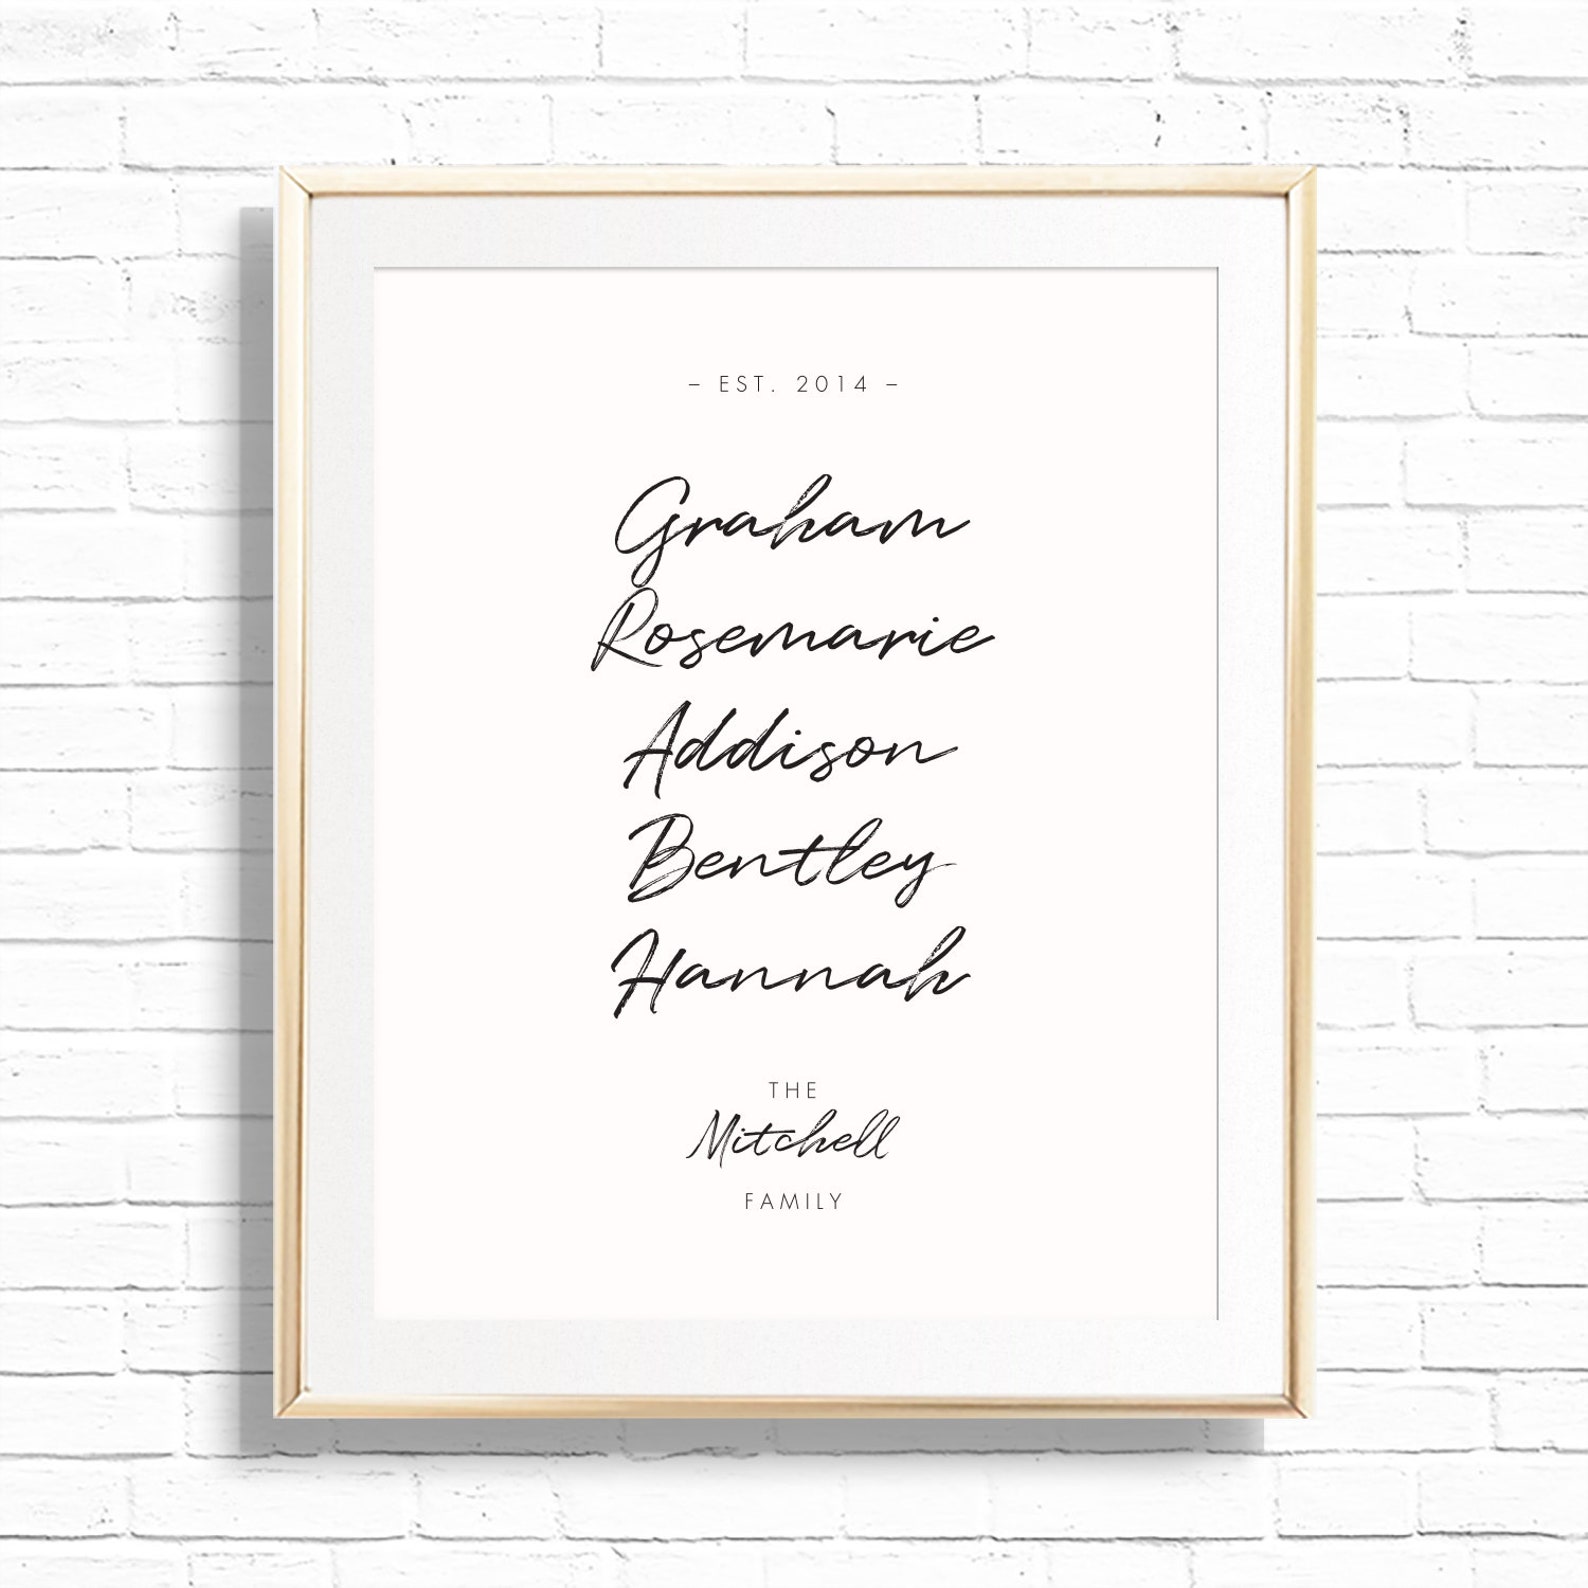 – EST. 2014 –
Graham
Rosemarie
Addison
Bentley
Hannah
THE
Mitchell
FAMILY